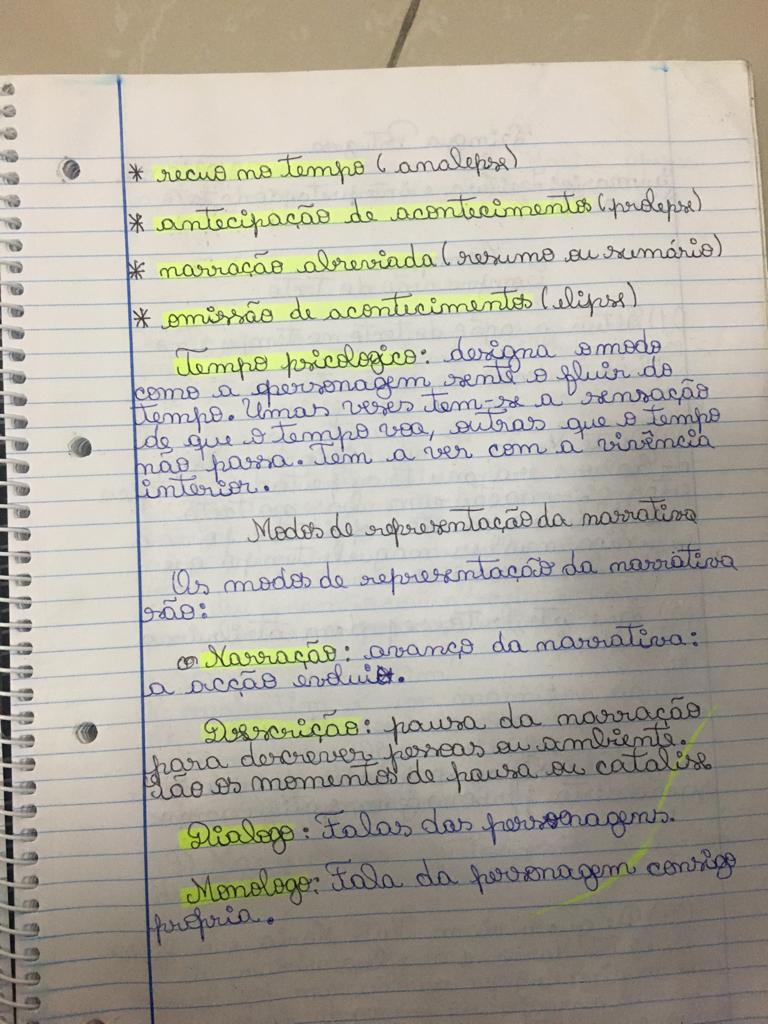 * recuo no tempo (analepse)
* antecipação de acontecimentos (prolepse)
* narração abreviada (resumo ou sumário)
* omissão de acontecimentos (elipse)
Tempo psicologico: designa o modo
como a personagem sente o fluir do
tempo. Umas veses tem-se a sensação
de que o tempo voa, outras que o tempo
não passa. Tem a ver com a vivência
interior.
Modos de representação da narrativa
Os modos de representação da narrativa
são:
Narração: avanço da narrativa:
a acção evolui.
Descrição: pausa da narração
para descrever pessoas ou ambiente.
São os momentos de pausa ou catalise
Dialogo: Falas das personagens.
Monologo: Fala da personagem consigo
propria.